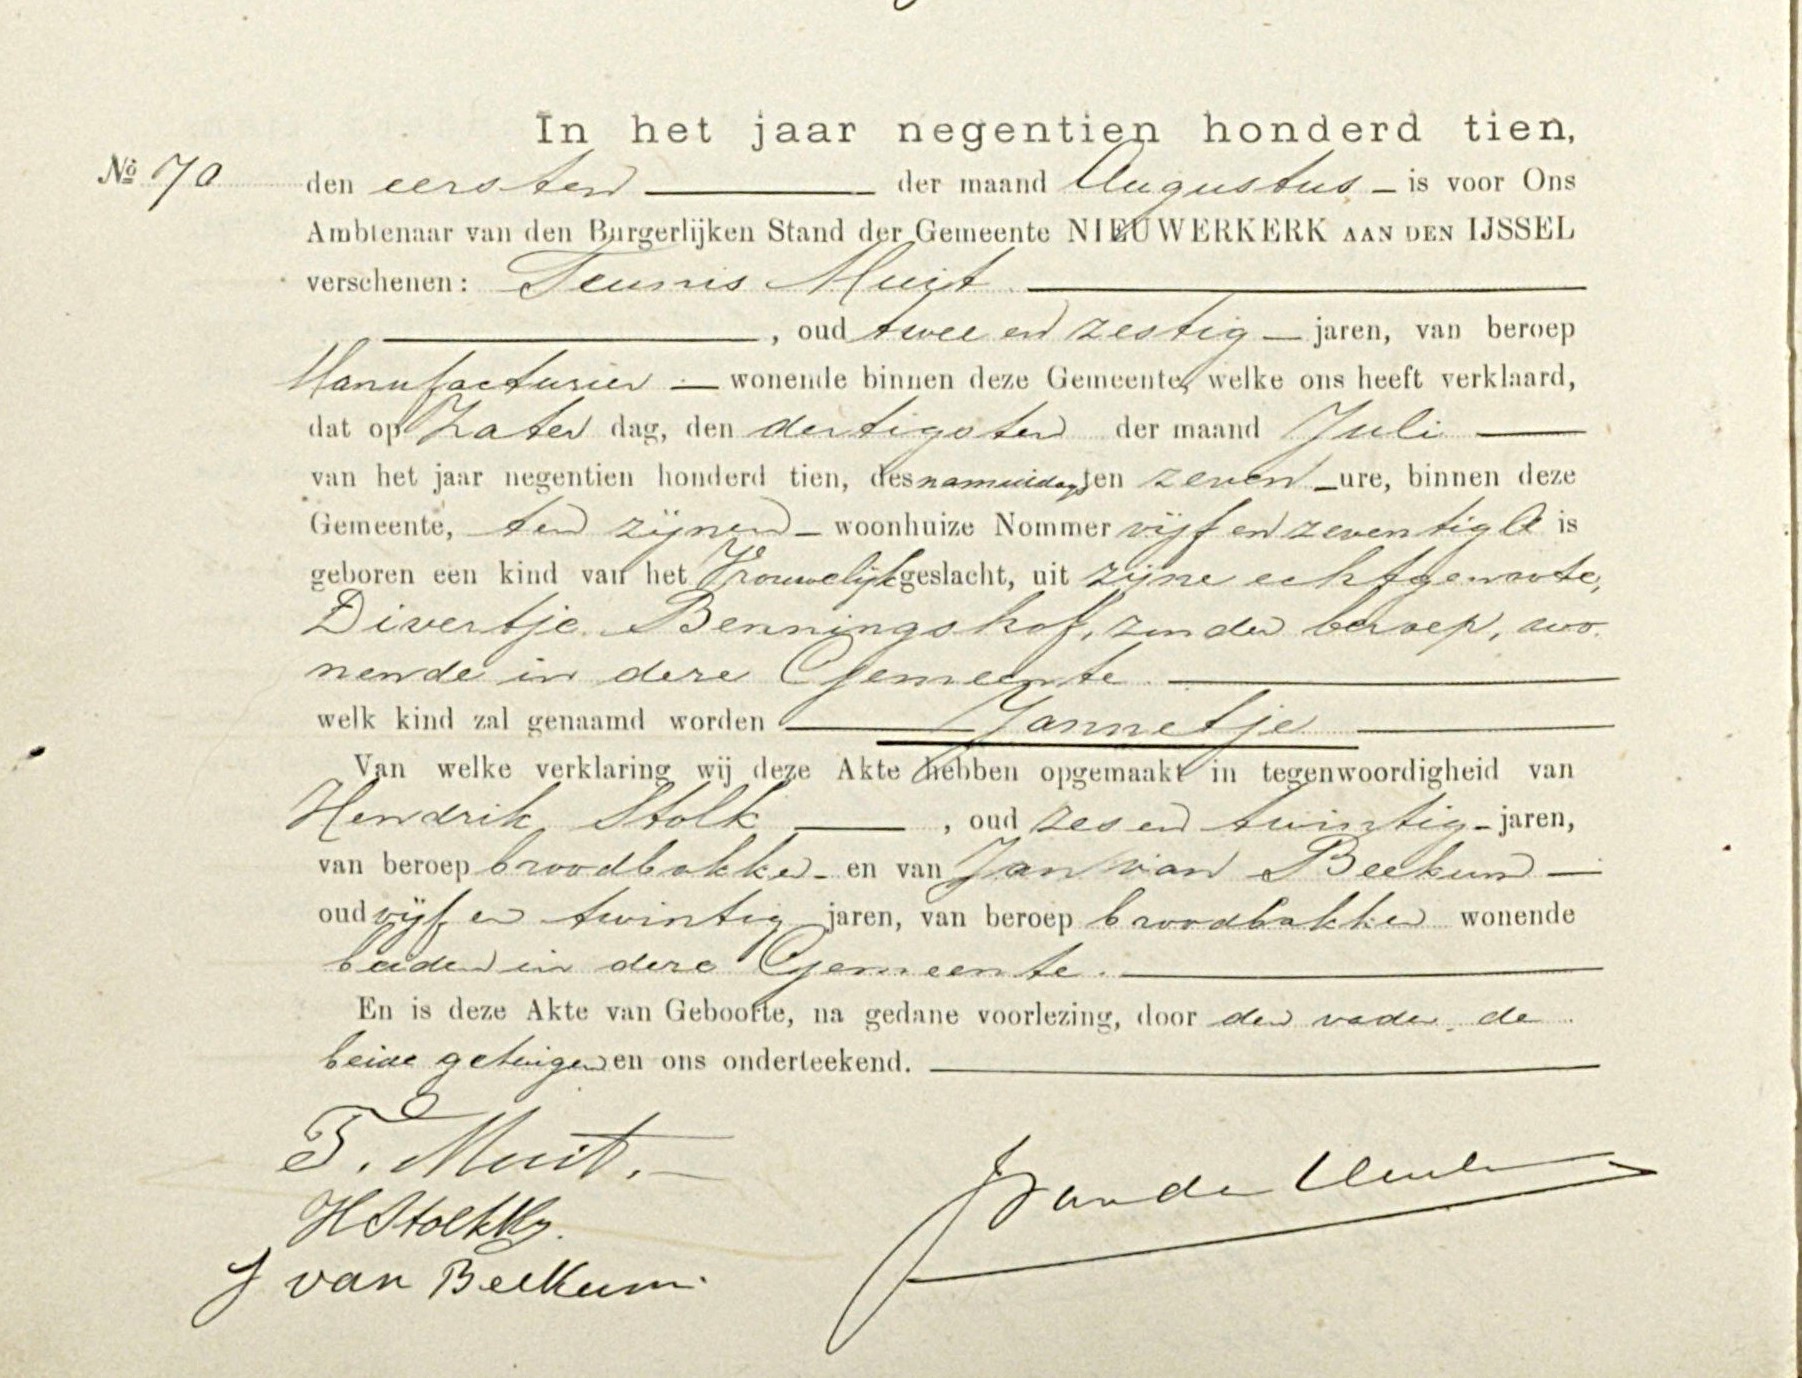 In het jaar negentien honderd tien,
No 70 den eersten der maand Augustus is voor Ons
Ambtenaar van den Burgerlijken Stand der Gemeente NIEUWERKERK AAN DEN IJSSEL
verschenen: Teunis Muit
, oud twee en zestig jaren, van beroep
Manufacturier wonende binnen deze Gemeente, welke ons heeft verklaard,
dat op Zater dag, den dertigsten der maand Juli
van het jaar negentien honderd tien, des namiddags ten zeven ure, binnen deze
Gemeente, ten zijnen woonhuize Nommer vijf en zeventig A is
geboren een kind van het Vrouwelijk geslacht, uit zijne echtgenoote,
Divertje Benningshof, zonder beroep, wo-
nende in deze Gemeente
welk kind zal genaamd worden Jannetje
Van welke verklaring wij deze Akte hebben opgemaakt in tegenwoordigheid van
Hendrik Stolk, oud zes en twintig jaren,
van beroep broodbakker en van Jan van Beekum
oud vijf en twintig jaren, van beroep broodbakker wonende
beiden in deze Gemeente.
En is deze Akte van Geboorte, na gedane voorlezing, door den vader, de
beide getuigen en ons onderteekend.
T. Muit.
H Stolk
J van Beekum